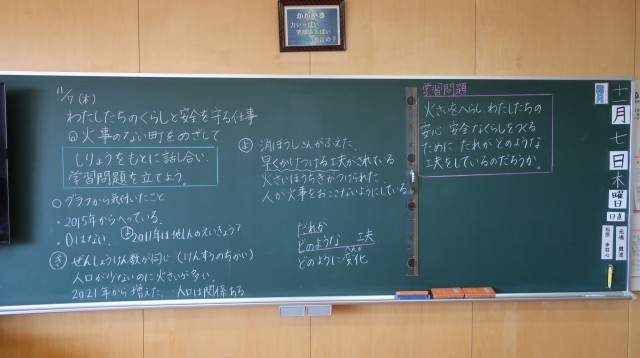 かがやき
力いっぱい
11/7(木)
わたしたちのくらしと安全を守る仕事
◎火事のない町をめざして
しりょうをもとに話し合い、
学習問題を立てよう。
○グラフから気付いたこと
・2015年からへっている。
・0はない。 よ 2011年は地しんのえいきょう?
き ぜんしょうけん数が同じ(けんすうのちがい)
人口が少ないのに火さいが多い。
2021年から増えた…人口は関係ある
よ 消ぼうしさんがふえた。
早くかけつける工夫がされている
火さいほうちきがつけられた
人が火事をおこさないようにしている。
だれが
どのような 工夫
どのように変化
へんか
学習問題
火さいをへらし、わたしたちの
安心・安全なくらしをつくる
ために、だれがどのような
工夫をしているのだろうか。
十一
月
七
日
木
曜
日
日直